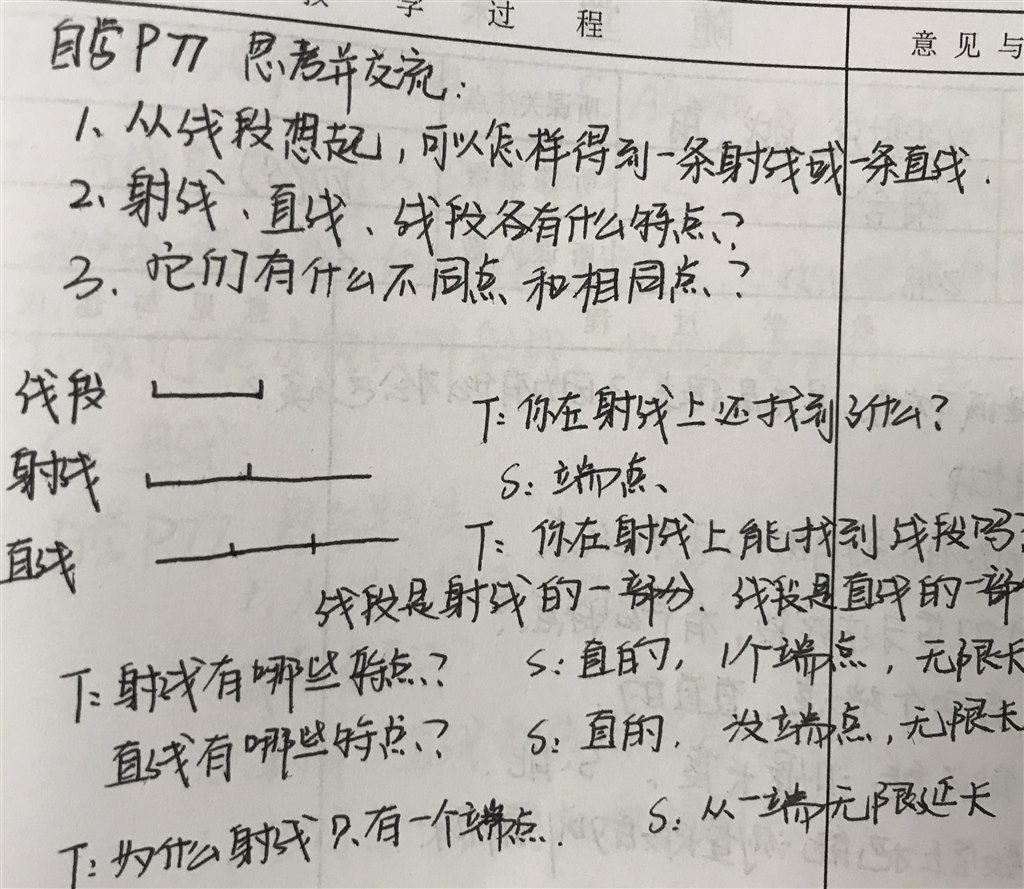 教学过程
意见与
自学P77 思考并交流：
1、从线段想起，可以怎样得到一条射线或一条直线.
2、射线、直线、线段各有什么特点？
3、它们有什么不同点和相同点？
线段
T：你在射线上还找到了什么？
射线
S：端点、
直线
T：你在射线上能找到线段吗？
线段是射线的一部分. 线段是直线的一部
T：射线有哪些特点？ S：直的，1个端点，无限长
直线有哪些特点？ S：直的，没端点，无限长
T：为什么射线只有一个端点. S：从一端无限延长